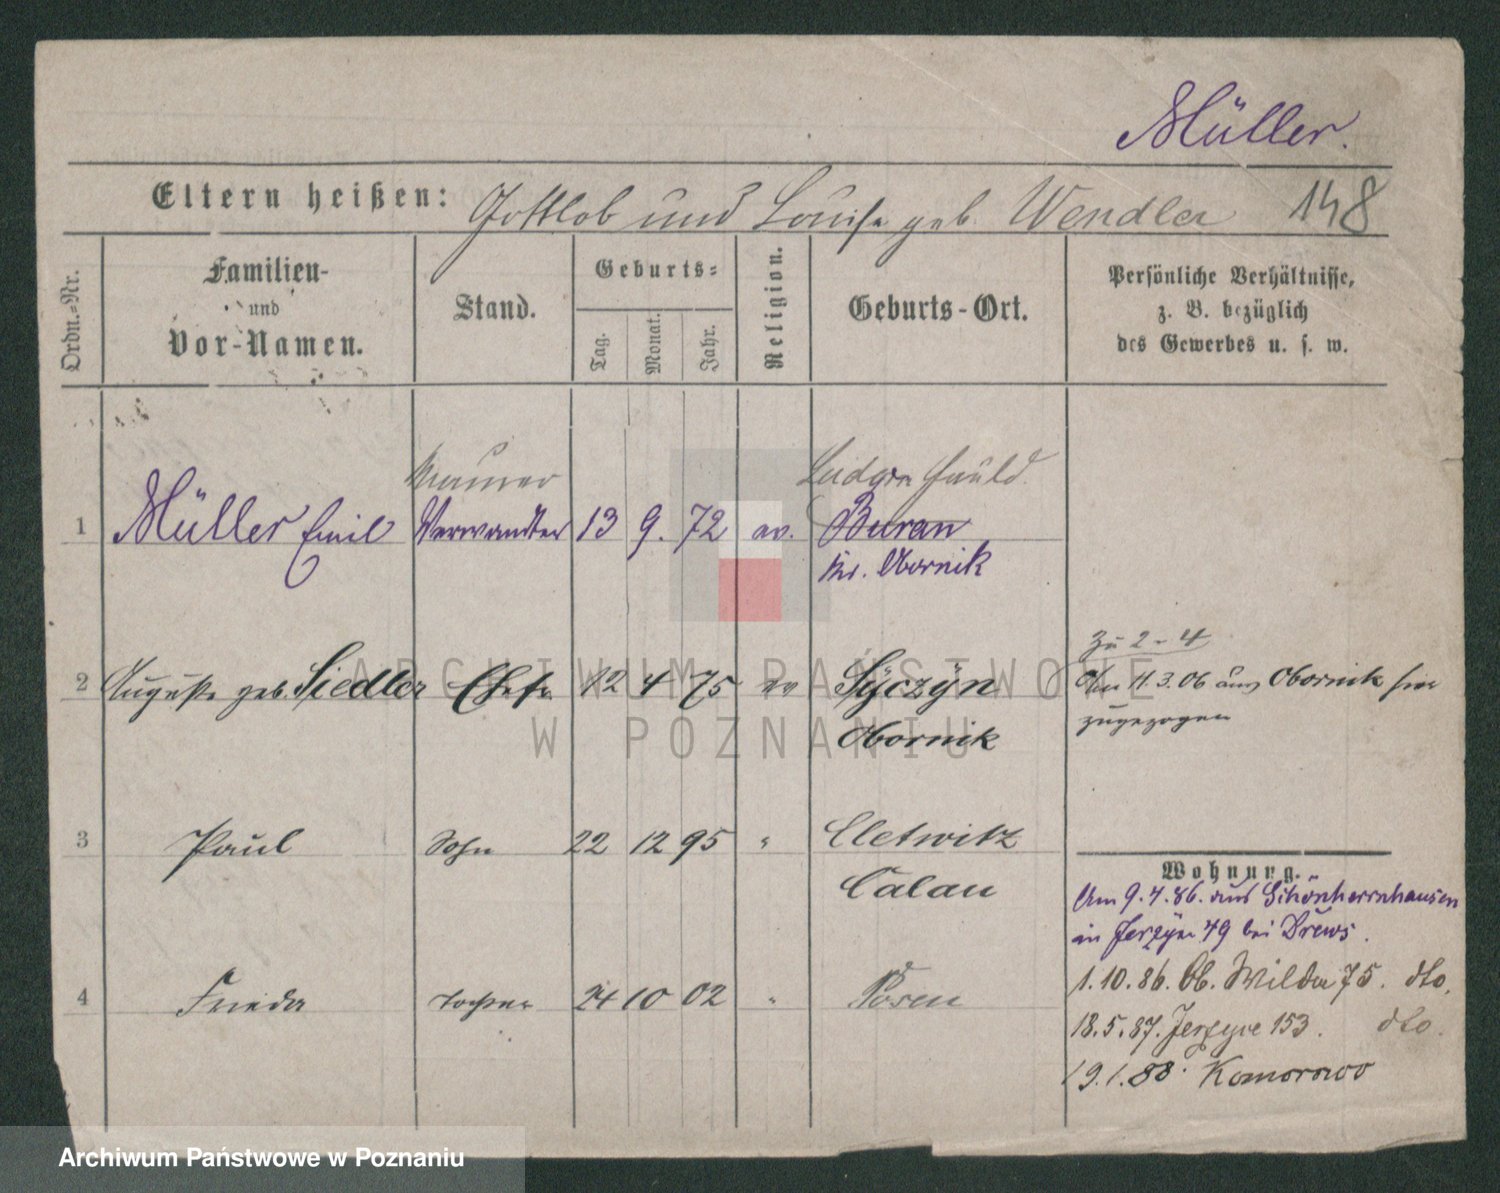 Müller.
Eltern heißen: Gottlob und Louise geb. Wendler 148
Ordn.-Nr.
Familien-
und
Vor-Namen.
Stand.
Geburts=
Tag.
Monat.
Jahr.
Religion.
Geburts-Ort.
Persönliche Verhältnisse,
z. B. bezüglich
des Gewerbes u. s. w.
Maurer
1 Müller Emil Verwandter 13 9. 72 ev. Buran
Kr. Obornik
Zu 2-4
2 Auguste geb. Siedler Ehefr 12 4 75 ev
Obornik
Am 11.3.06 aus Obornik hier
zugezogen
3 Paul Sohn 22 12 95 "
Calau
4 Frieda Tochter 24 10 02 " Posen
Wohnung.
Am 9.4.86. aus Schönherrnhausen
in Jerzyce 49 bei Drews.
1.10.86. Ob. Wilda 75. dto.
18.5.87. Jerzyce 153. dto.
19.1.88. Komorowo
ARCHIWUM PAŃSTWOWE
W POZNANIU
Archiwum Państwowe w Poznaniu